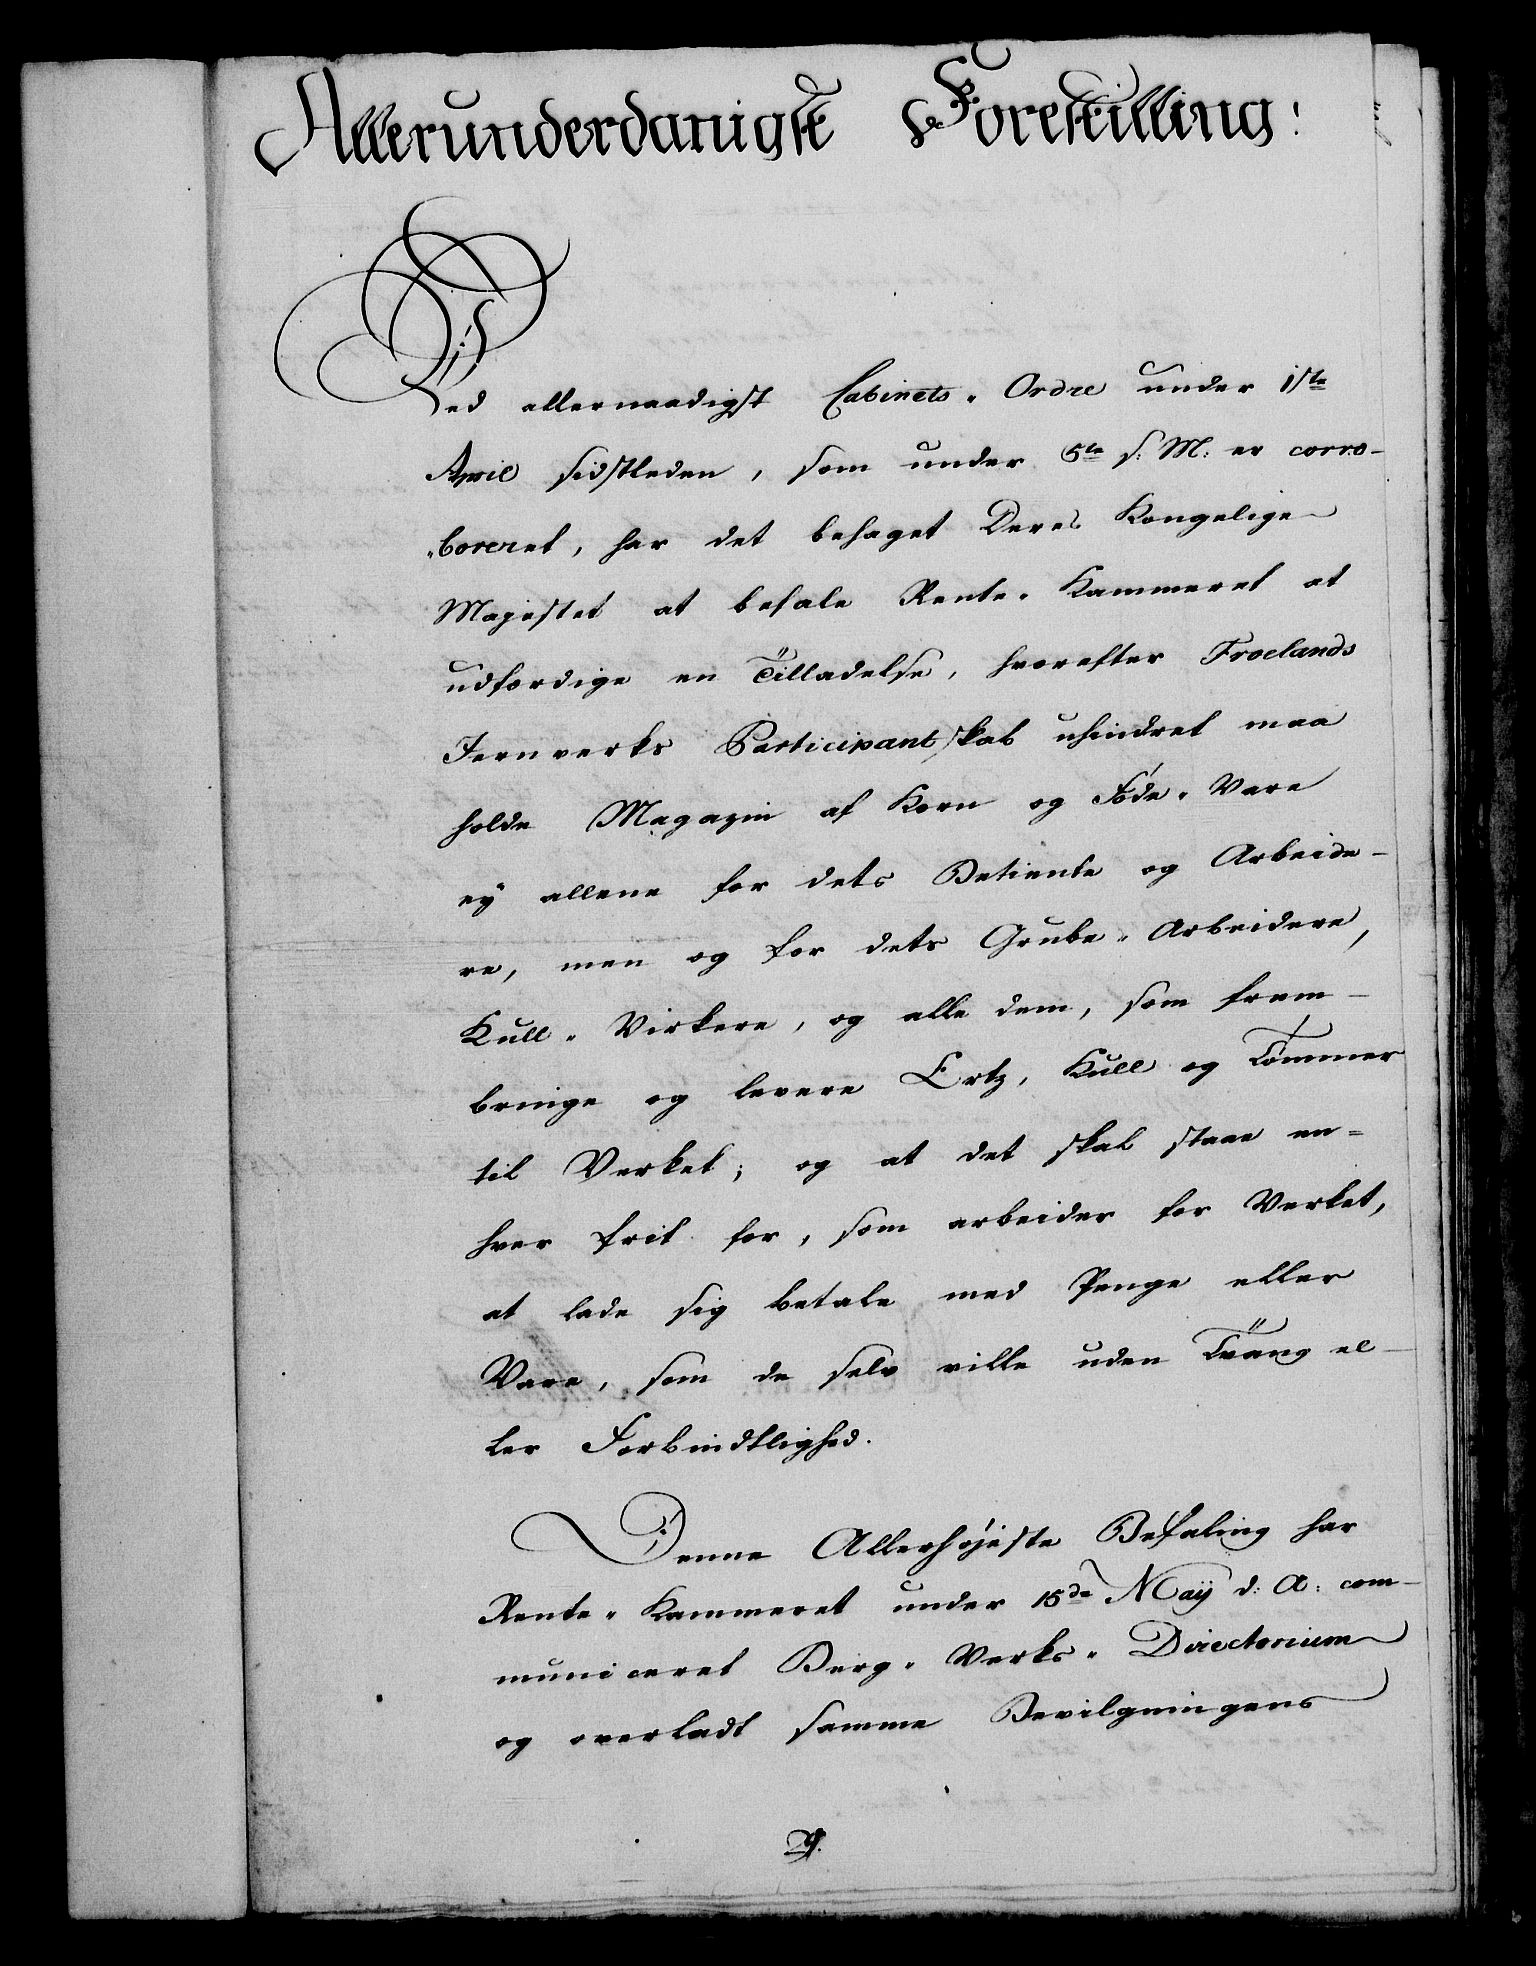 Allerunderdanigste Forestilling:
Ved allernaadigst Cabinets-Ordre under 1ste
April sidstleden, som under 5te s: M: er corro-
boreret, har det behaget Deres Kongelige
Majestet at befale Rente-Kammeret at
udfærdige en Tilladelse, hvorefter Froelands
Jernverks Participantskab uhindret maa
holde Magazin af Korn og Føde-Vare
ey allene for dets Betiente og Arbeide-
re, men og for dets Grube-Arbeidere,
Kull-Virkere, og alle dem, som frem-
bringe og levere Ertz, Kull og Tømmer
til Verket; og at det skal staae en-
hver frit for, som arbeider for Verket,
at lade sig betale med Penge eller
Vare, som de selv ville uden Tvang el-
ler Forbindtlighed.
Denne Allerhøjeste Befaling har
Rente-Kammeret under 15de Maÿ d: A: com-
municeret Berg-Verks-Directorium
og overladt samme Bevilgningens